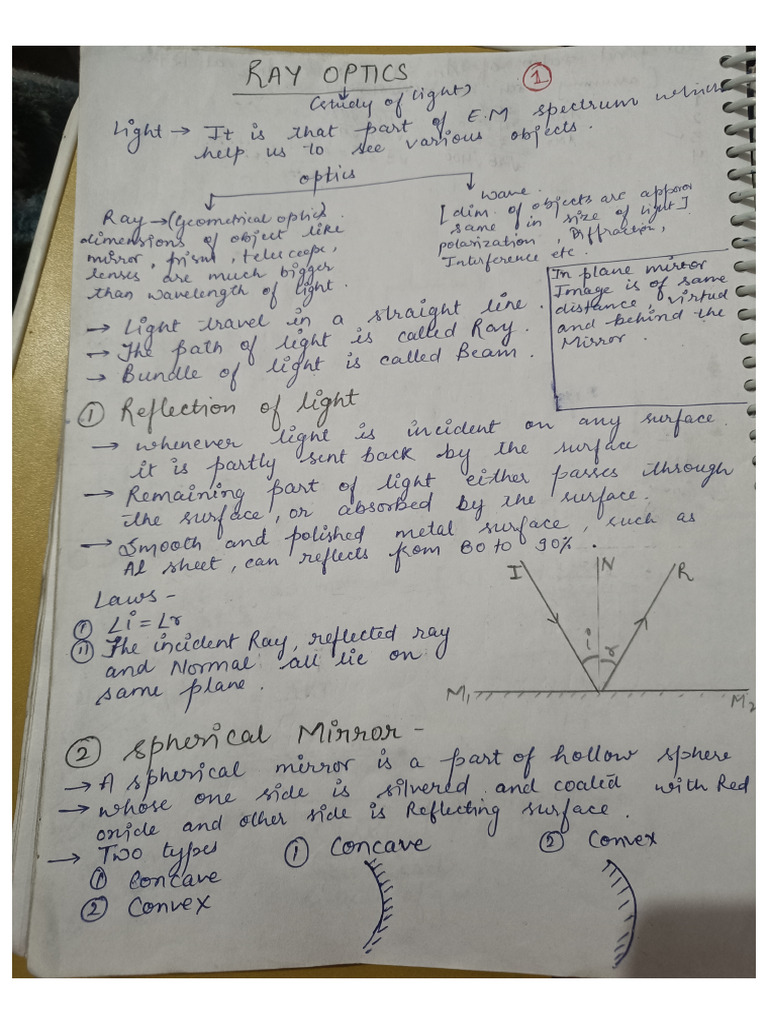 RAY OPTICS
1
(study of light)
Light → It is that part of E.M spectrum which
help us to see various objects.
optics
Ray → (Geometrical optics).
dimensions of object like
mirror, prism, telescope,
lenses are much bigger
than wavelength of light.
wave.
[dim. of objects are approx
same in size of light]
polarization, Diffraction,
Interference etc.
In plane mirror
Image is of same
distance, virtual
and behind the
Mirror.
→ Light travel in a straight line.
→ The path of light is called Ray.
→ Bundle of light is called Beam.
① Reflection of light
→ whenever light is incident on any surface.
it is partly sent back by the surface
→ Remaining part of light either passes through
the surface, or absorbed by the surface.
→ Smooth and polished metal surface, such as
Al sheet, can reflects from 80 to 90%.
Laws -
① ∠i = ∠r
② The incident Ray, reflected ray
and Normal all lie on
same plane.
I N R
i r
M₁ M₂
② Spherical Mirror -
→ A spherical mirror is a part of hollow sphere
→ whose one side is silvered and coated with Red
oxide and other side is Reflecting surface.
→ Two types
① Concave
② Convex
① Concave
② Convex